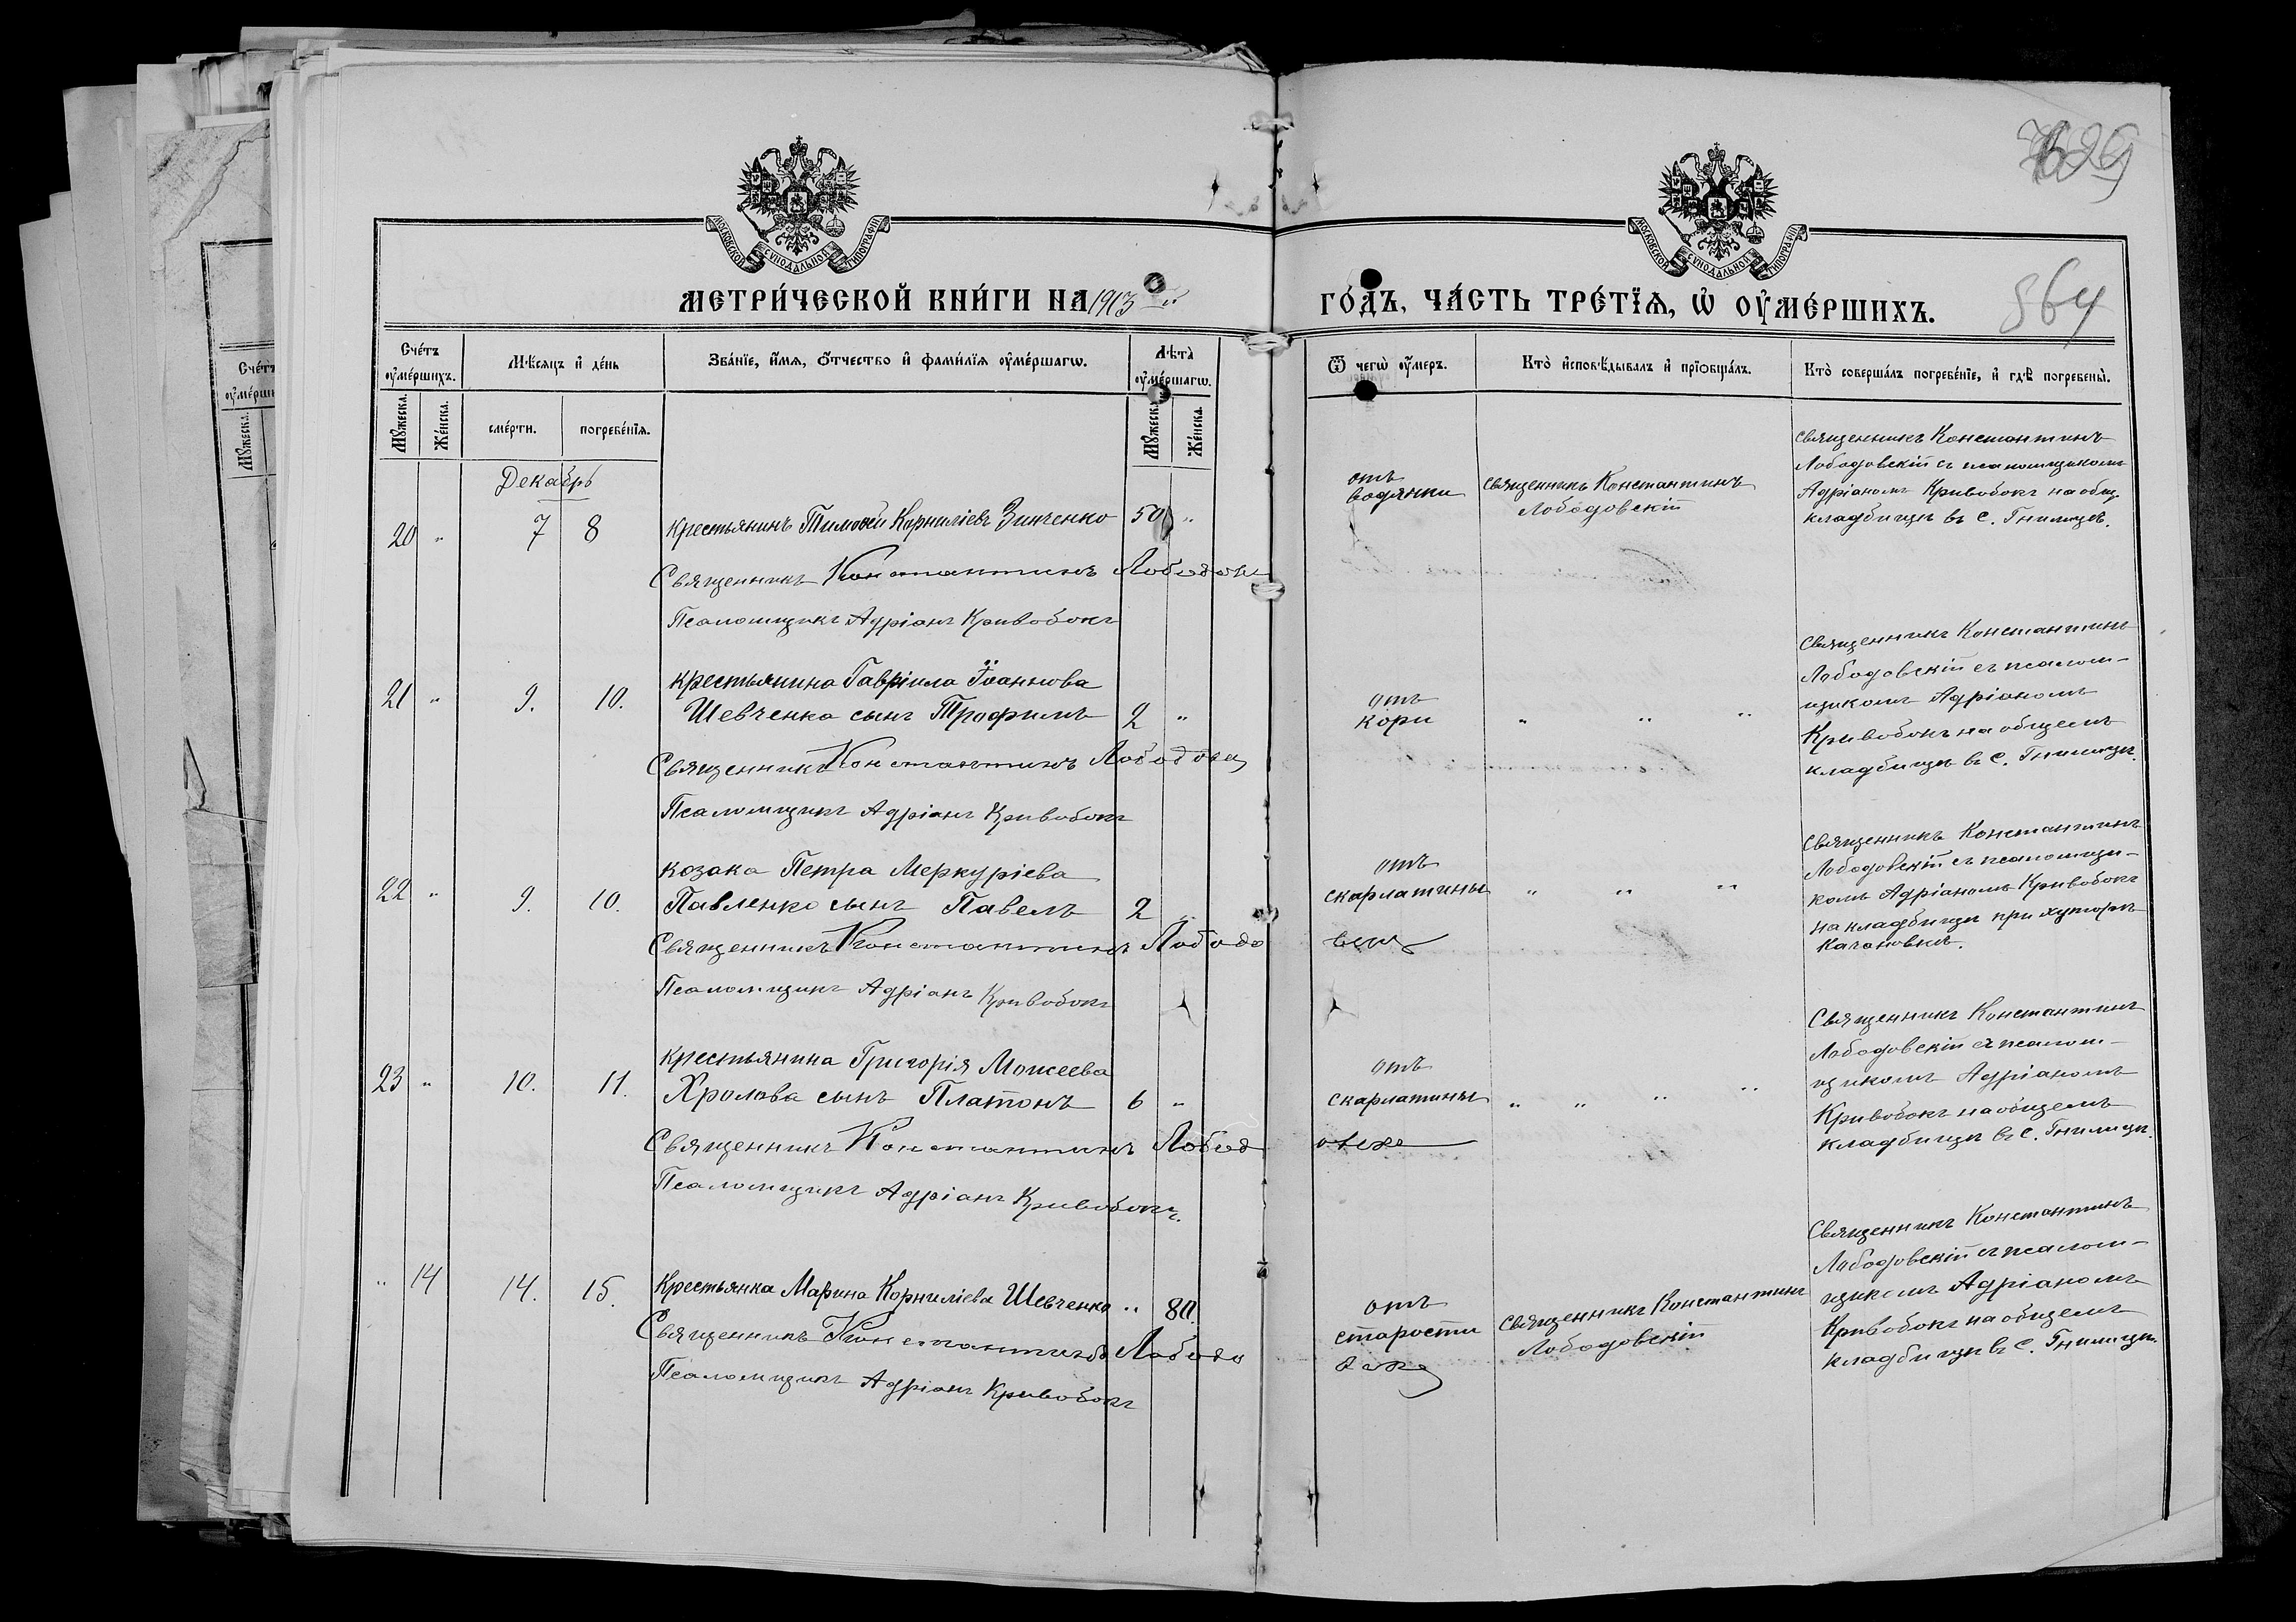 629
564
МОСКОВСКОЙ СѴНОДАЛЬНОЙ ТИПОГРАФІИ
МОСКОВСКОЙ СѴНОДАЛЬНОЙ ТИПОГРАФІИ
МЕТРИ́ЧЕСКОЙ КНИ́ГИ НА 1913 й
ГО́ДЪ, ЧА́СТЬ ТРЕ́ТЇѦ, Ѡ҆ ОУ҆МЕ́РШИХЪ.
Сче́тъ оу҆ме́ршихъ.
Мѣ́сяцъ и҆ де́нь
Зва́нїе, и҆́мя, ѻ҆́тчество и҆ фами́лїя оу҆ме́ршагѡ.
Лѣ̀та оу҆ме́ршагѡ.
Ѿ чегѡ̀ оу҆́меръ.
Кто̀ и҆сповѣ́дывалъ и҆ прїѻбща́лъ.
Кто̀ соверша́лъ погребе́нїе, и҆ гдѣ̀ погребены̀.
Мꙋ́жеска.
Же́нска.
сме́рти.
погребе́нїя.
Мꙋ́жеска.
Же́нска.
Декабрь
20 " 7 8 Крестьянинъ Тимоѳей Корниліевъ Зинченко 50 "
Священникъ Константинъ Лободовск
Псаломщикъ Адріанъ Кривобокъ
отъ
водянки
Священникъ Константинъ
Лободовскій
Священникъ Константинъ
Лободовскій съ псаломщикомъ
Адріаномъ Кривобокъ на общ.
кладбищѣ въ с. Гнилицѣ.
Крестьянина Гавріила Іоаннова
21 " 9. 10. Шевченка сынъ Трофимъ 2 "
Священникъ Константинъ Лободовск
Псаломщикъ Адріанъ Кривобокъ
отъ
кори " " "
Священникъ Константинъ
Лободовскій съ псалом-
щикомъ Адріаномъ
Кривобокъ на общемъ
кладбищѣ въ с. Гнилицѣ.
Козака Петра Меркуріева
22 " 9. 10. Павленко сынъ Павелъ 2 "
Священникъ Константинъ Лободо
вск
Псаломщикъ Адріанъ Кривобокъ
отъ
скарлатины " " "
Священникъ Константинъ
Лободовскій съ псаломщи-
комъ Адріаномъ Кривобокъ
на кладбищѣ при хуторѣ
Качановкѣ.
Крестьянина Григорія Моисеева
23 " 10. 11. Хролова сынъ Платонъ 6 "
Священникъ Константинъ Лобод
овск
Псаломщикъ Адріанъ Кривобокъ.
отъ
скарлатины " " " "
Священникъ Константинъ
Лободовскій съ псалом-
щикомъ Адріаномъ
Кривобокъ на общемъ
кладбищѣ въ с. Гнилицѣ.
" 14 14. 15. Крестьянка Марина Корниліева Шевченко " 80.
Священникъ Константинъ Лободо
вск
Псаломщикъ Адріанъ Кривобокъ
отъ
старости
Священникъ Константинъ
Лободовскій
Священникъ Константинъ
Лободовскій съ псалом-
щикомъ Адріаномъ
Кривобокъ на общемъ
кладбищѣ въ с. Гнилицѣ.
Сче́тъ
оу҆ме́рши
Мꙋ́жеска.